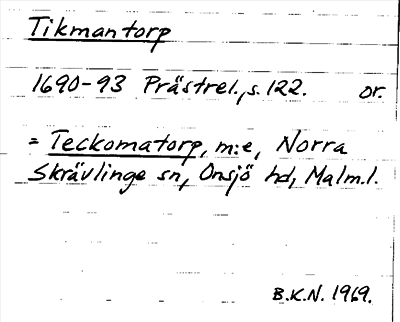 Tikmantorp
1690-93 Prästrel., s. 122. or.
= Teckomatorp, m:e, Norra
Skrävlinge sn, Onsjö hd, Malm.l.
B.K.N. 1969.